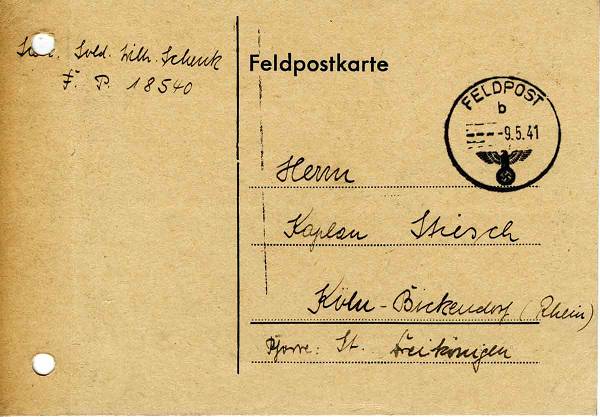 Sold. Wilh. Schenk
F. P. 18540
Feldpostkarte
FELDPOST
b
-9.5.41
Herrn
Kaplan Stiesch
Köln-Bickendorf (Rhein)
Pfarre: St. Dreikönigen